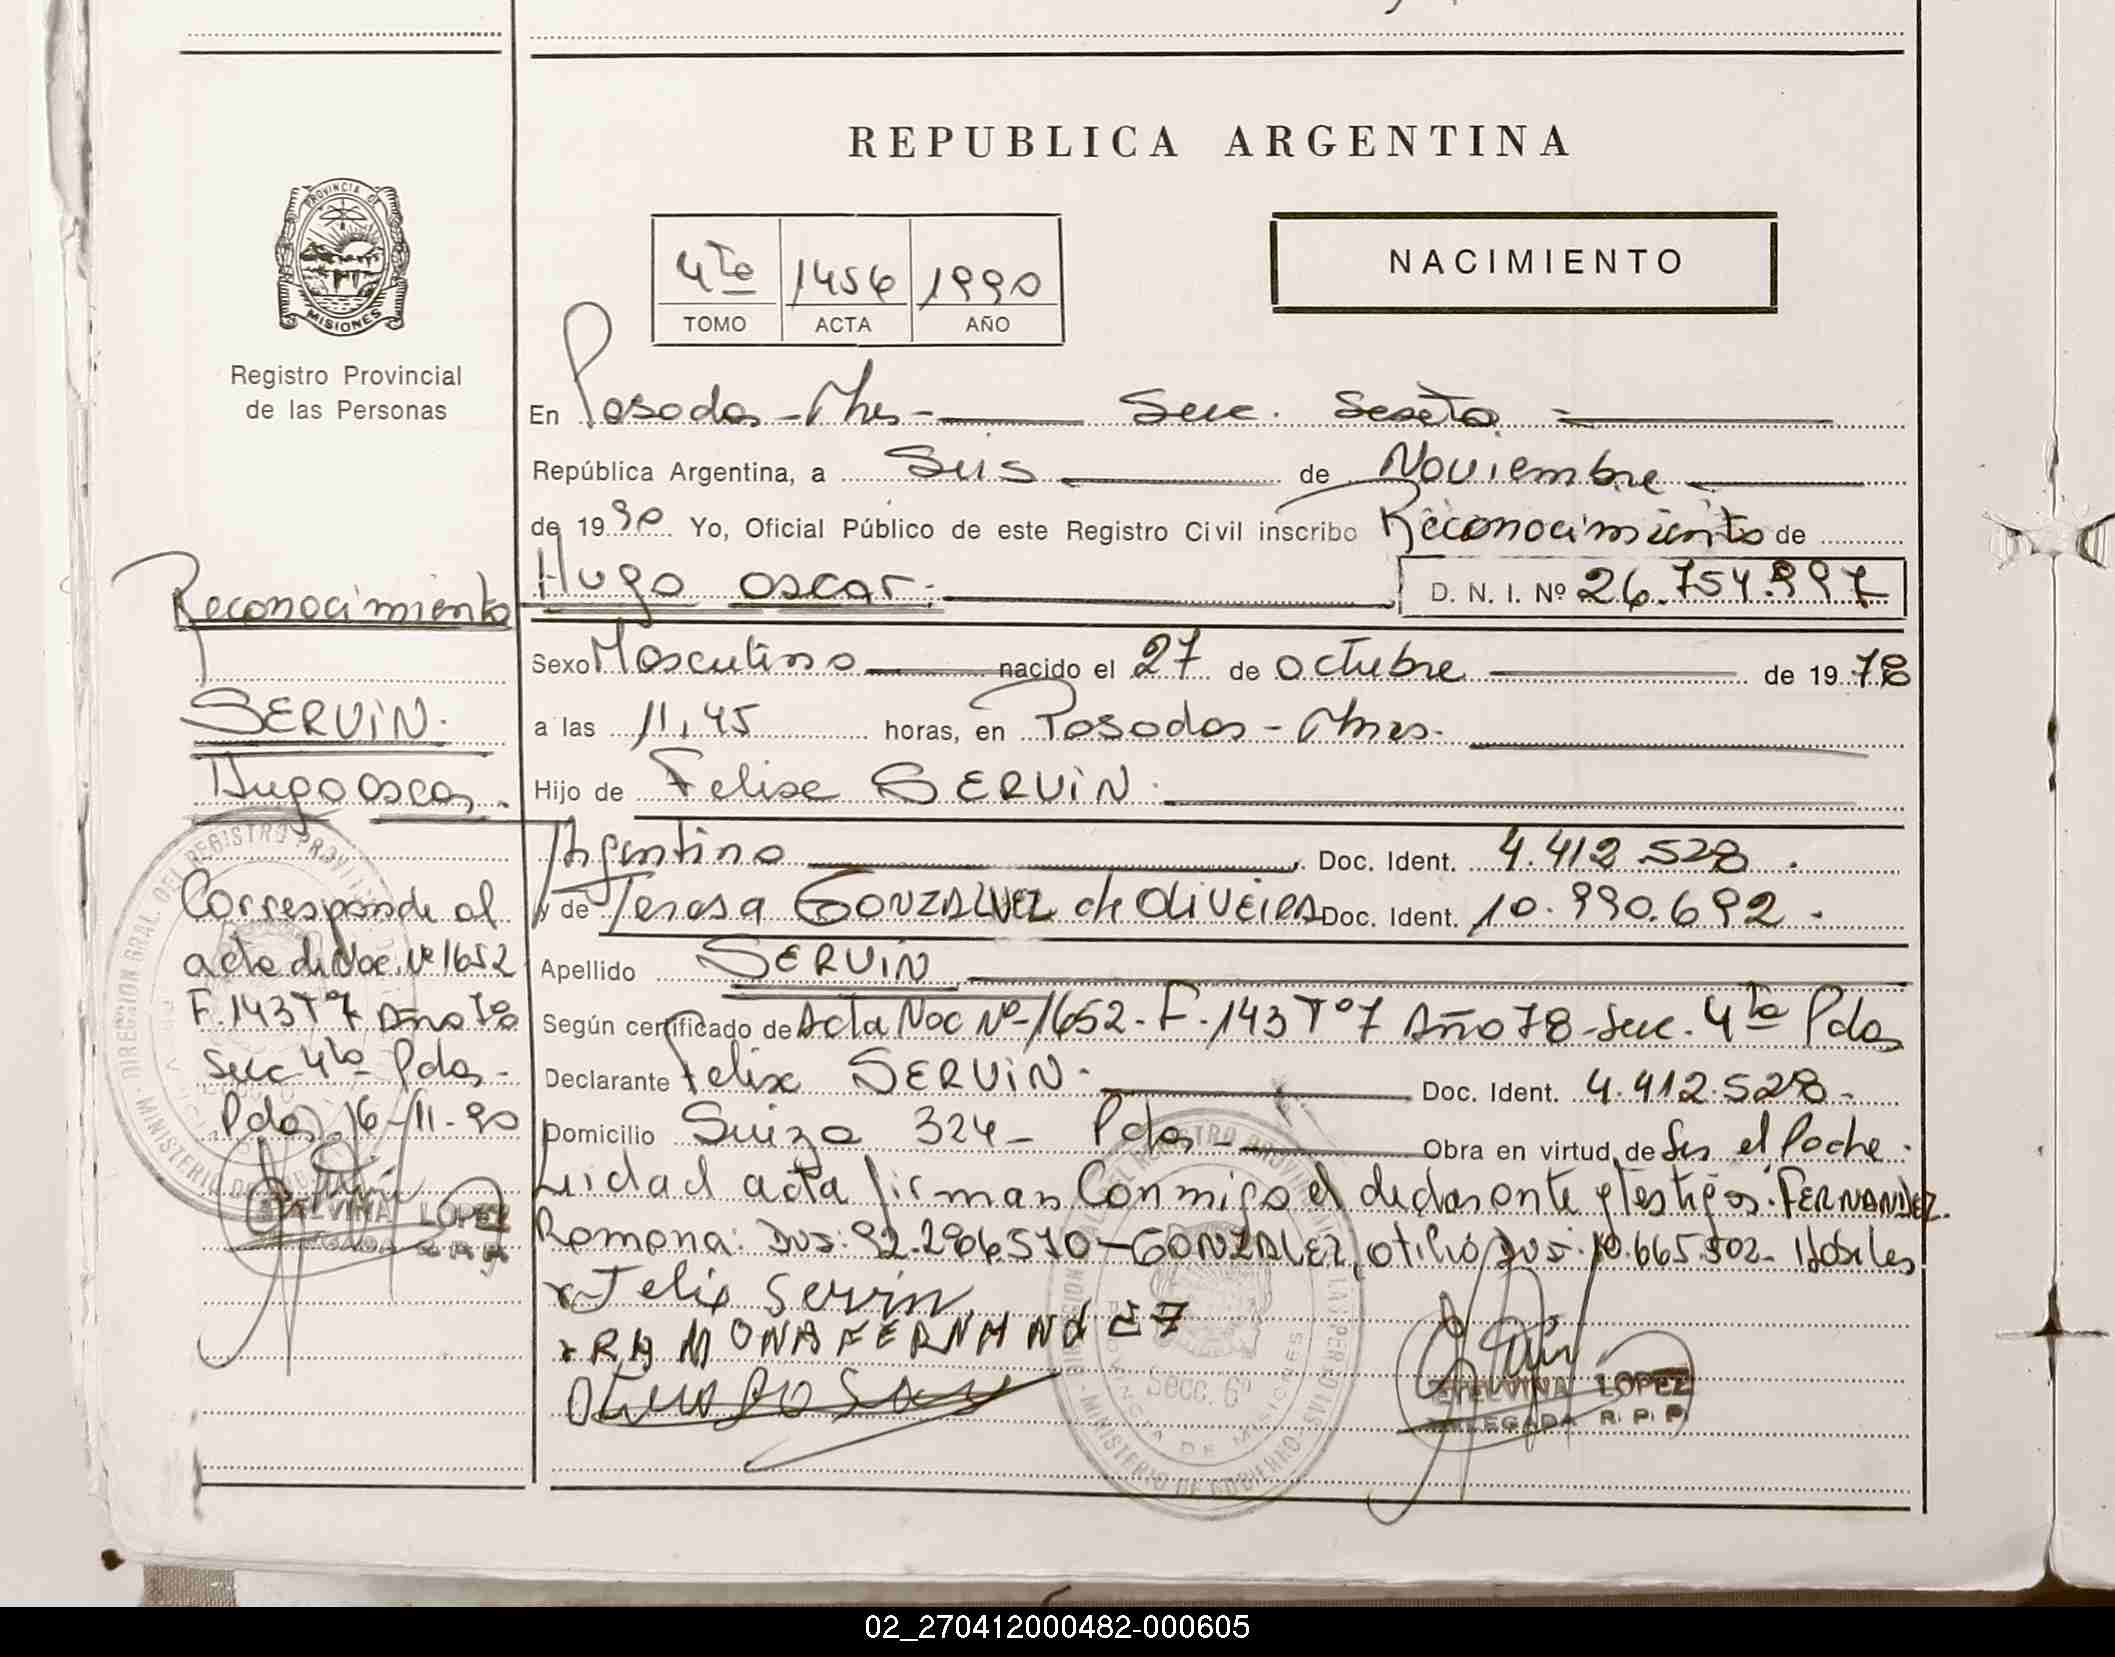 REPUBLICA ARGENTINA
NACIMIENTO
4ta 1456 1990
TOMO ACTA AÑO
PROVINCIA DE
MISIONES
Registro Provincial
de las Personas
Reconocimiento
SERVIN.
Hugo oscar.
Corresponde al
acta de Nac. Nº 1652
F. 143 Tº 7 Año 78
Secc 4ta Pdas-
Pdas, 16-11-90
ETELVINA LOPEZ
DELEGADA R.P.P.
En Posadas-Mnes- Secc. Sexta
República Argentina, a Seis de Noviembre
de 1990 Yo, Oficial Público de este Registro Civil inscribo Reconocimiento de
Hugo oscar. D. N. I. Nº 26.754.997
Sexo Masculino nacido el 27 de octubre de 1978
a las 11,45 horas, en Posadas-Mnes.
Hijo de Felix SERVIN.
Argentino Doc. Ident. 4.412.528.
y de Teresa GONZALVEZ de OLIVEIRA Doc. Ident. 10.990.692.
Apellido SERVIN
Según certificado de Acta Nac Nº-1652-F.143 Tº7 Año 78-Secc. 4ta Pdas
Declarante Felix SERVIN. Doc. Ident. 4.412.528-
Domicilio Suiza 324- Pdas- Obra en virtud de Ser el Padre.
Leidad acta firman Conmigo el declarante y testigos: FERNANDEZ.
Ramona: DNI: 92.296.570-GONZALEZ, otilio DNI: 10.665.502- Hábiles
x Felix Servin
x RAMONA FERNANdEZ
ETELVINA LOPEZ
DELEGADA R.P.P.
Secc. 6ª
PROVINCIA DE MISIONES
MINISTERIO DE GOBIERNO
02_270412000482-000605